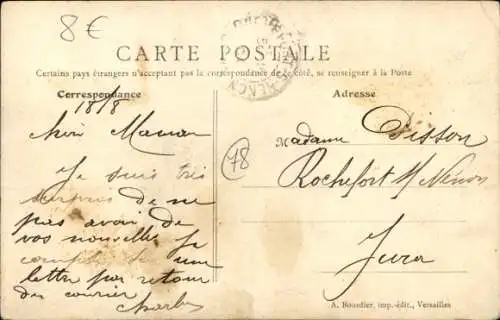 8 €
CARTE POSTALE
Certains pays étrangers n'acceptant pas la correspondance de ce côté, se renseigner à la Poste
Correspondance
Adresse
18/8
chère Maman
Je suis très
surpris de ne
pas avoir de
vos nouvelles Je
compte une
lettre par retour
du courrier
Charles
78
Madame Disson
Rochefort s/ Nénon
Jura
A. Bourdier, imp.-édit., Versailles